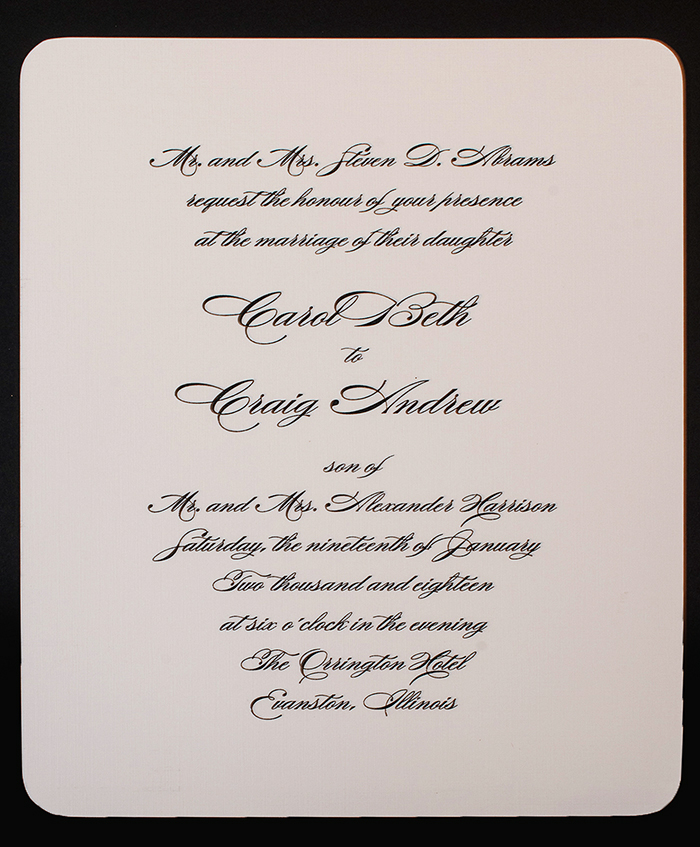 Mr. and Mrs. Steven D. Abrams
request the honour of your presence
at the marriage of their daughter
Carol Beth
to
Craig Andrew
son of
Mr. and Mrs. Alexander Harrison
Saturday, the nineteenth of January
Two thousand and eighteen
at six o'clock in the evening
The Orrington Hotel
Evanston, Illinois